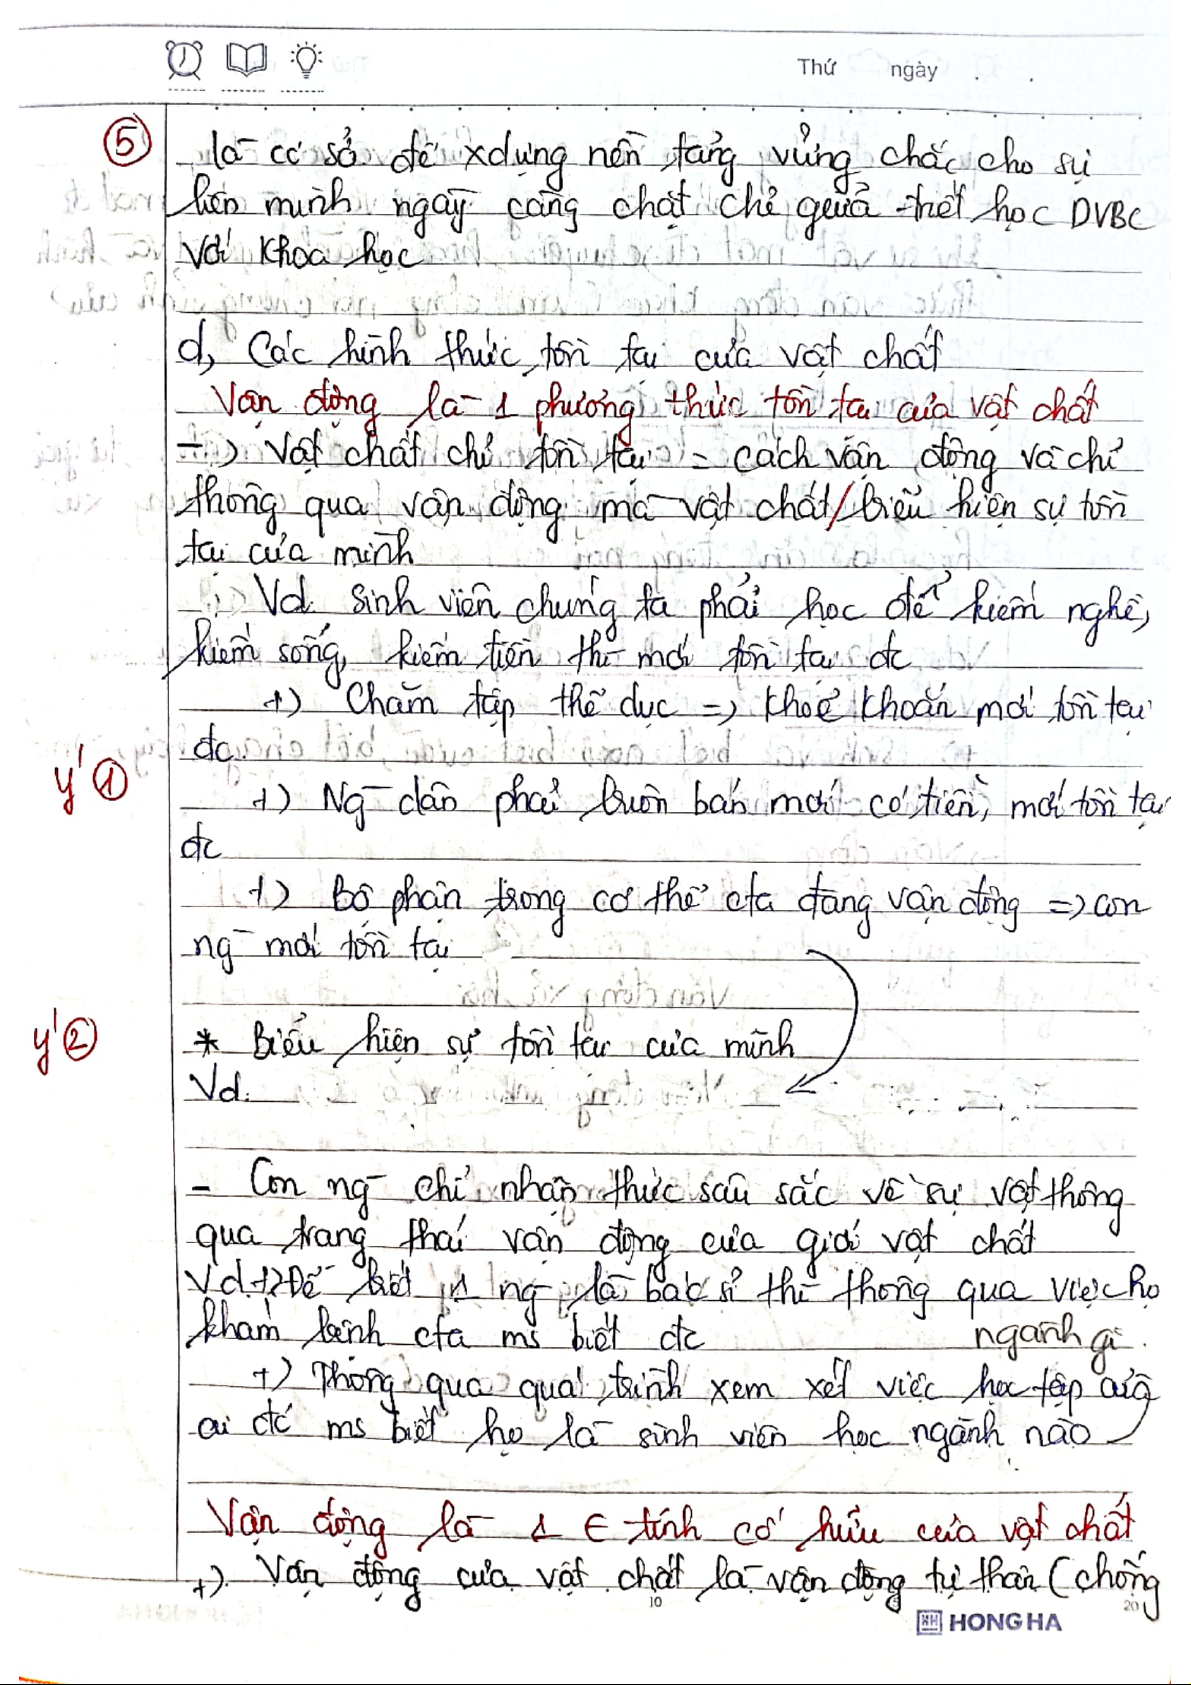 Thứ ngày . .
⑤ là cơ sở để xdựng nền tảng vững chắc cho sự
liên minh ngày càng chặt chẽ giữa triết học DVBC
với khoa học
d, Các hình thức tồn tại của vật chất
Vận động là 1 phương thức tồn tại của vật chất
-> Vật chất chỉ tồn tại = cách vận động và chỉ
thông qua vận động mà vật chất/biểu hiện sự tồn
tại của mình
Vd sinh viên chúng ta phải học để kiếm nghề,
kiếm sống, kiếm tiền thì mới tồn tại đc
+) Chăm tập thể dục => khoẻ khoắn mới tồn tại
đc
y'①
+) Ng dân phải buôn bán mới có tiền, mới tồn tại
đc
+) Bộ phận trong cơ thể cta đang vận động => con
ng mới tồn tại
y'② * Biểu hiện sự tồn tại của mình
Vd.
- Con ng chỉ nhận thức sâu sắc về sự vật thông
qua trạng thái vận động của giới vật chất
Vd +) Để biết 1 ng là bác sĩ thì thông qua việc họ
khám bệnh cta ms biết đc ngành gì.
+) Thông qua quá trình xem xét việc học tập của
ai đó ms biết họ là sinh viên học ngành nào
Vận động là 1 ∈ tính cố hữu của vật chất
+) Vận động của vật chất là vận động tự thân (chống
10
20
HH HONG HA